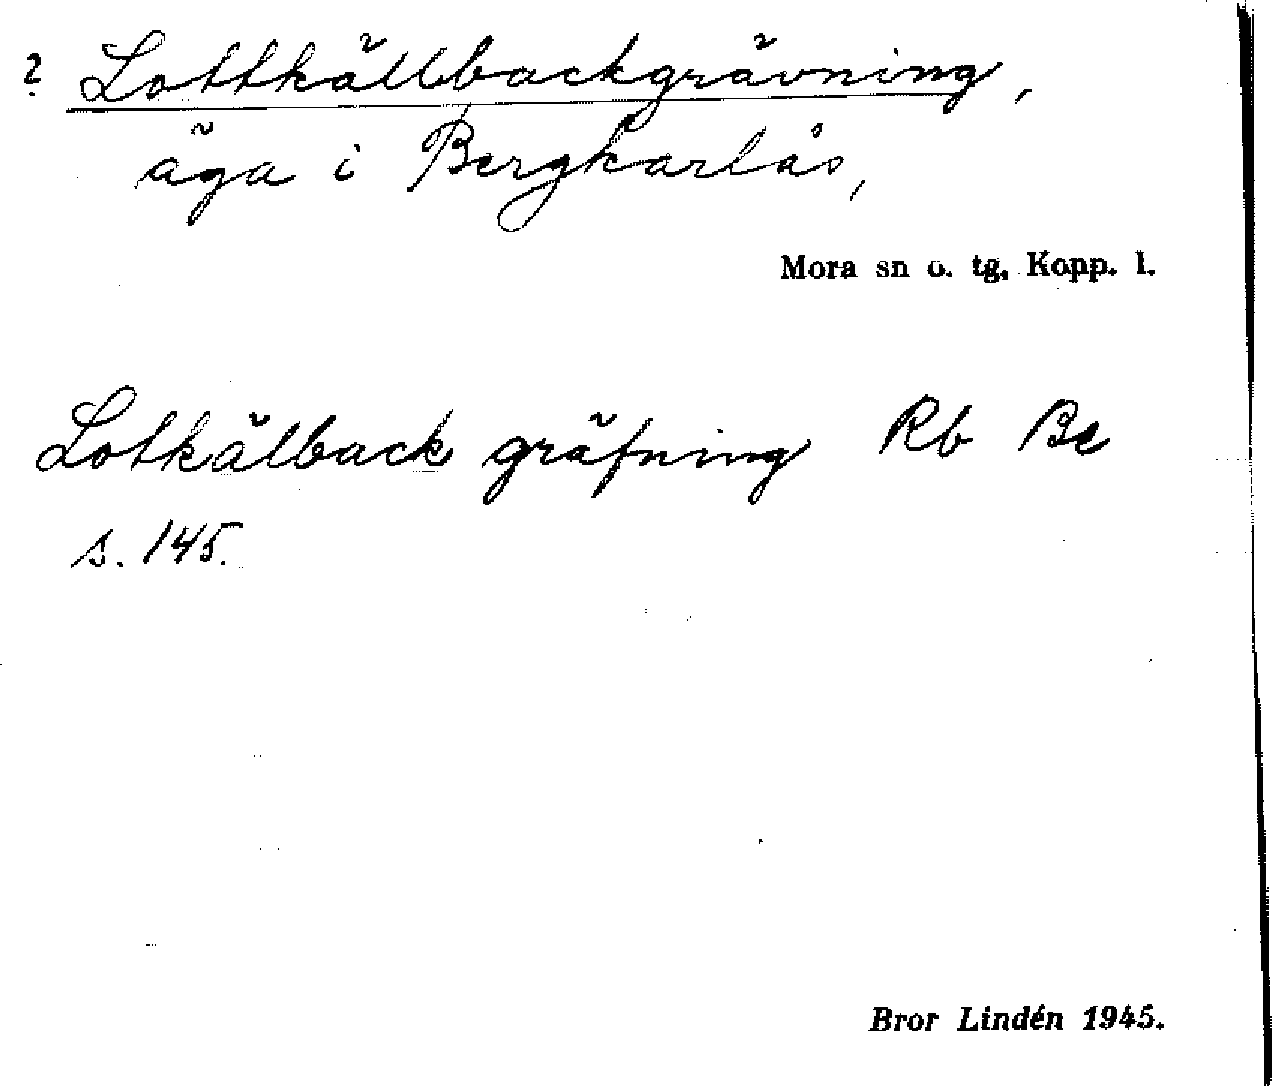 ? Lottkällbackgrävning,
äga i Bergkarlås,
Mora sn o. tg. Kopp. l.
Lotkälback gräfning Rb Be
s. 145.
Bror Lindén 1945.